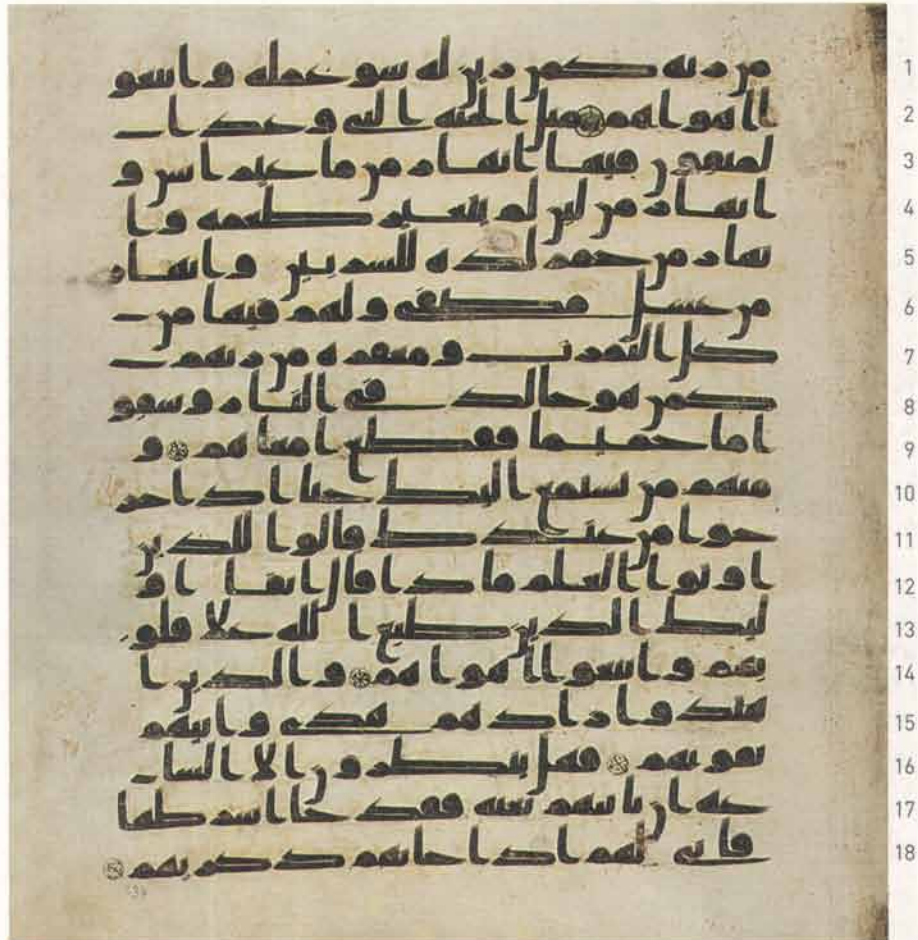 1 من ربه كمن زين له سو عمله واتبعو
2 ا اهواهم مثل الجنه التي وعد ا
3 لمتقون فيها انهار من ما غير اسن و
4 انهار من لبن لم يتغير طعمه وا
5 نهار من خمر لذه للشربين وانهار
6 من عسل مصفى ولهم فيها من
7 كل الثمرت ومغفره من ربهم
8 كمن هو خالد في النار وسقو
9 ا ما حميما فقطع امعاهم و
10 منهم من يستمع اليك حتى اذا خر
11 جوا من عندك قالوا للذين
12 اوتوا العلم ماذا قال انفا او
13 ليك الذين طبع الله على قلو
14 بهم واتبعوا اهواهم والذين ا
15 هتدوا زادهم هدى واتيهم
16 تقويهم فهل ينظرون الا السا
17 عه ان تاتيهم بغته فقد جا اشرطها
18 فانى لهم اذا جاتهم ذكريهم